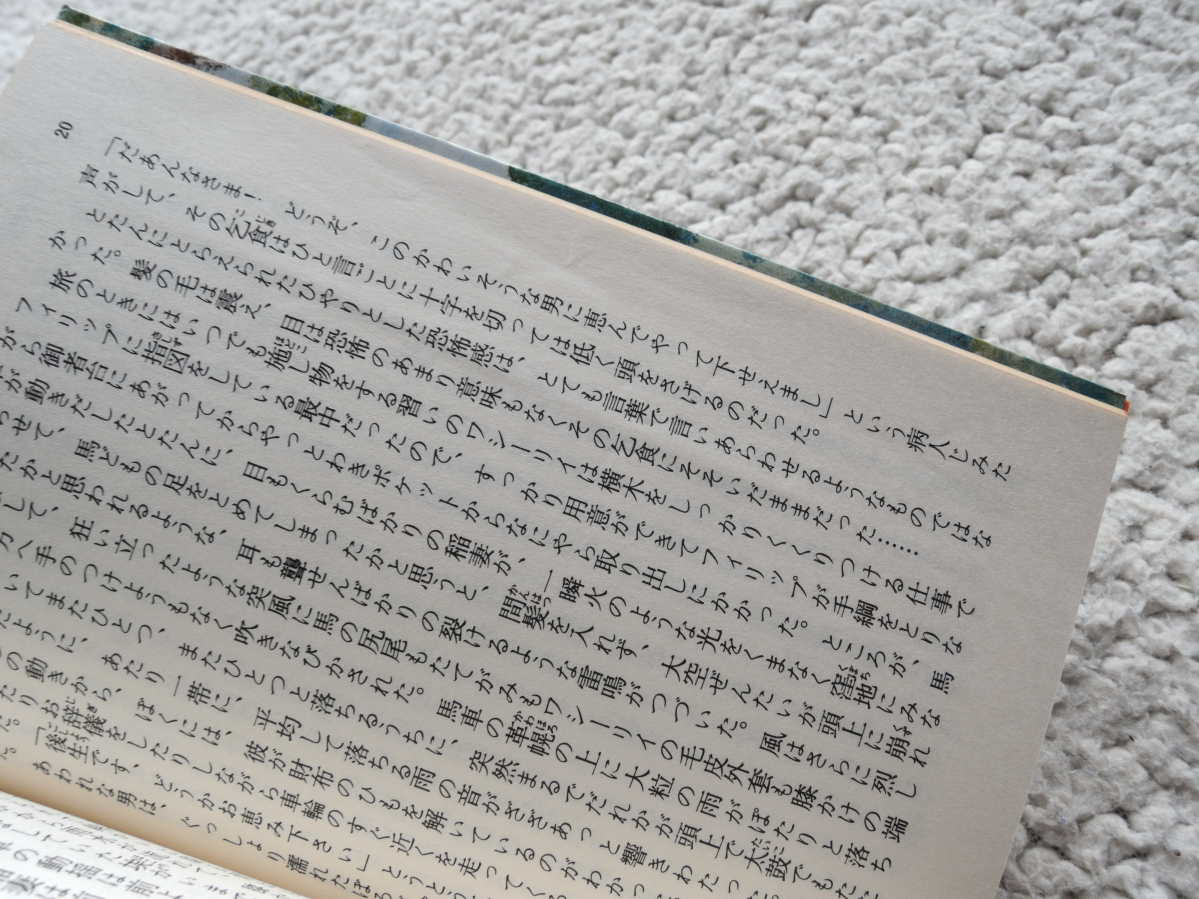 20
「だあんなさま! どうぞ、このかわいそうな男に恵んでやって下せえまし」という病人じみた
声がして、その乞食はひと言ごとに十字を切っては低く頭をさげるのだった。
とたんにとらえられたひやりとした恐怖感は、とても言葉で言いあらわせるようなものではな
かった。髪の毛は震え、目は恐怖のあまり意味もなくその乞食にそそいだままだった……
旅のときにはいつでも施し物をする習いのワシーリイは横木をしっかりくくりつける仕事で
フィリップに指図をしている最中だったので、すっかり用意ができてフィリップが手綱をとりな
がら御者台にあがってからやっとわきポケットからなにやら取り出しにかかった。ところが、馬
が動きだしたとたんに、目もくらむばかりの稲妻が、一瞬火のような光をくまなく窪地にみな
せて、馬どもの足をとめてしまったかと思うと、間髪を入れず、大空ぜんたいが頭上に崩れ
たかと思われるような、耳も聾せんばかりの裂けるような雷鳴がつづいた。風はさらに烈し
して、狂い立ったような突風に馬の尻尾もたてがみもワシーリイの毛皮外套も膝かけの端
方へ手のつけようもなく吹きなびかされた。馬車の革幌の上に大粒の雨がぽたりと落ち
いてまたひとつ、またひとつと落ちるうちに、突然まるでだれかが頭上で太鼓でもたた
たように、あたり一帯に、平均して落ちる雨の音がざざあっと響きわたった
の動きから、ぼくには、彼が財布のひもを解いているのがわかっ
たりお辞儀をしたりしながら車輪のすぐ近くを走ってく
「後生です、どうかお恵み下さい」とうとう
あわれな男は、ぐっしょり濡れたぼろ